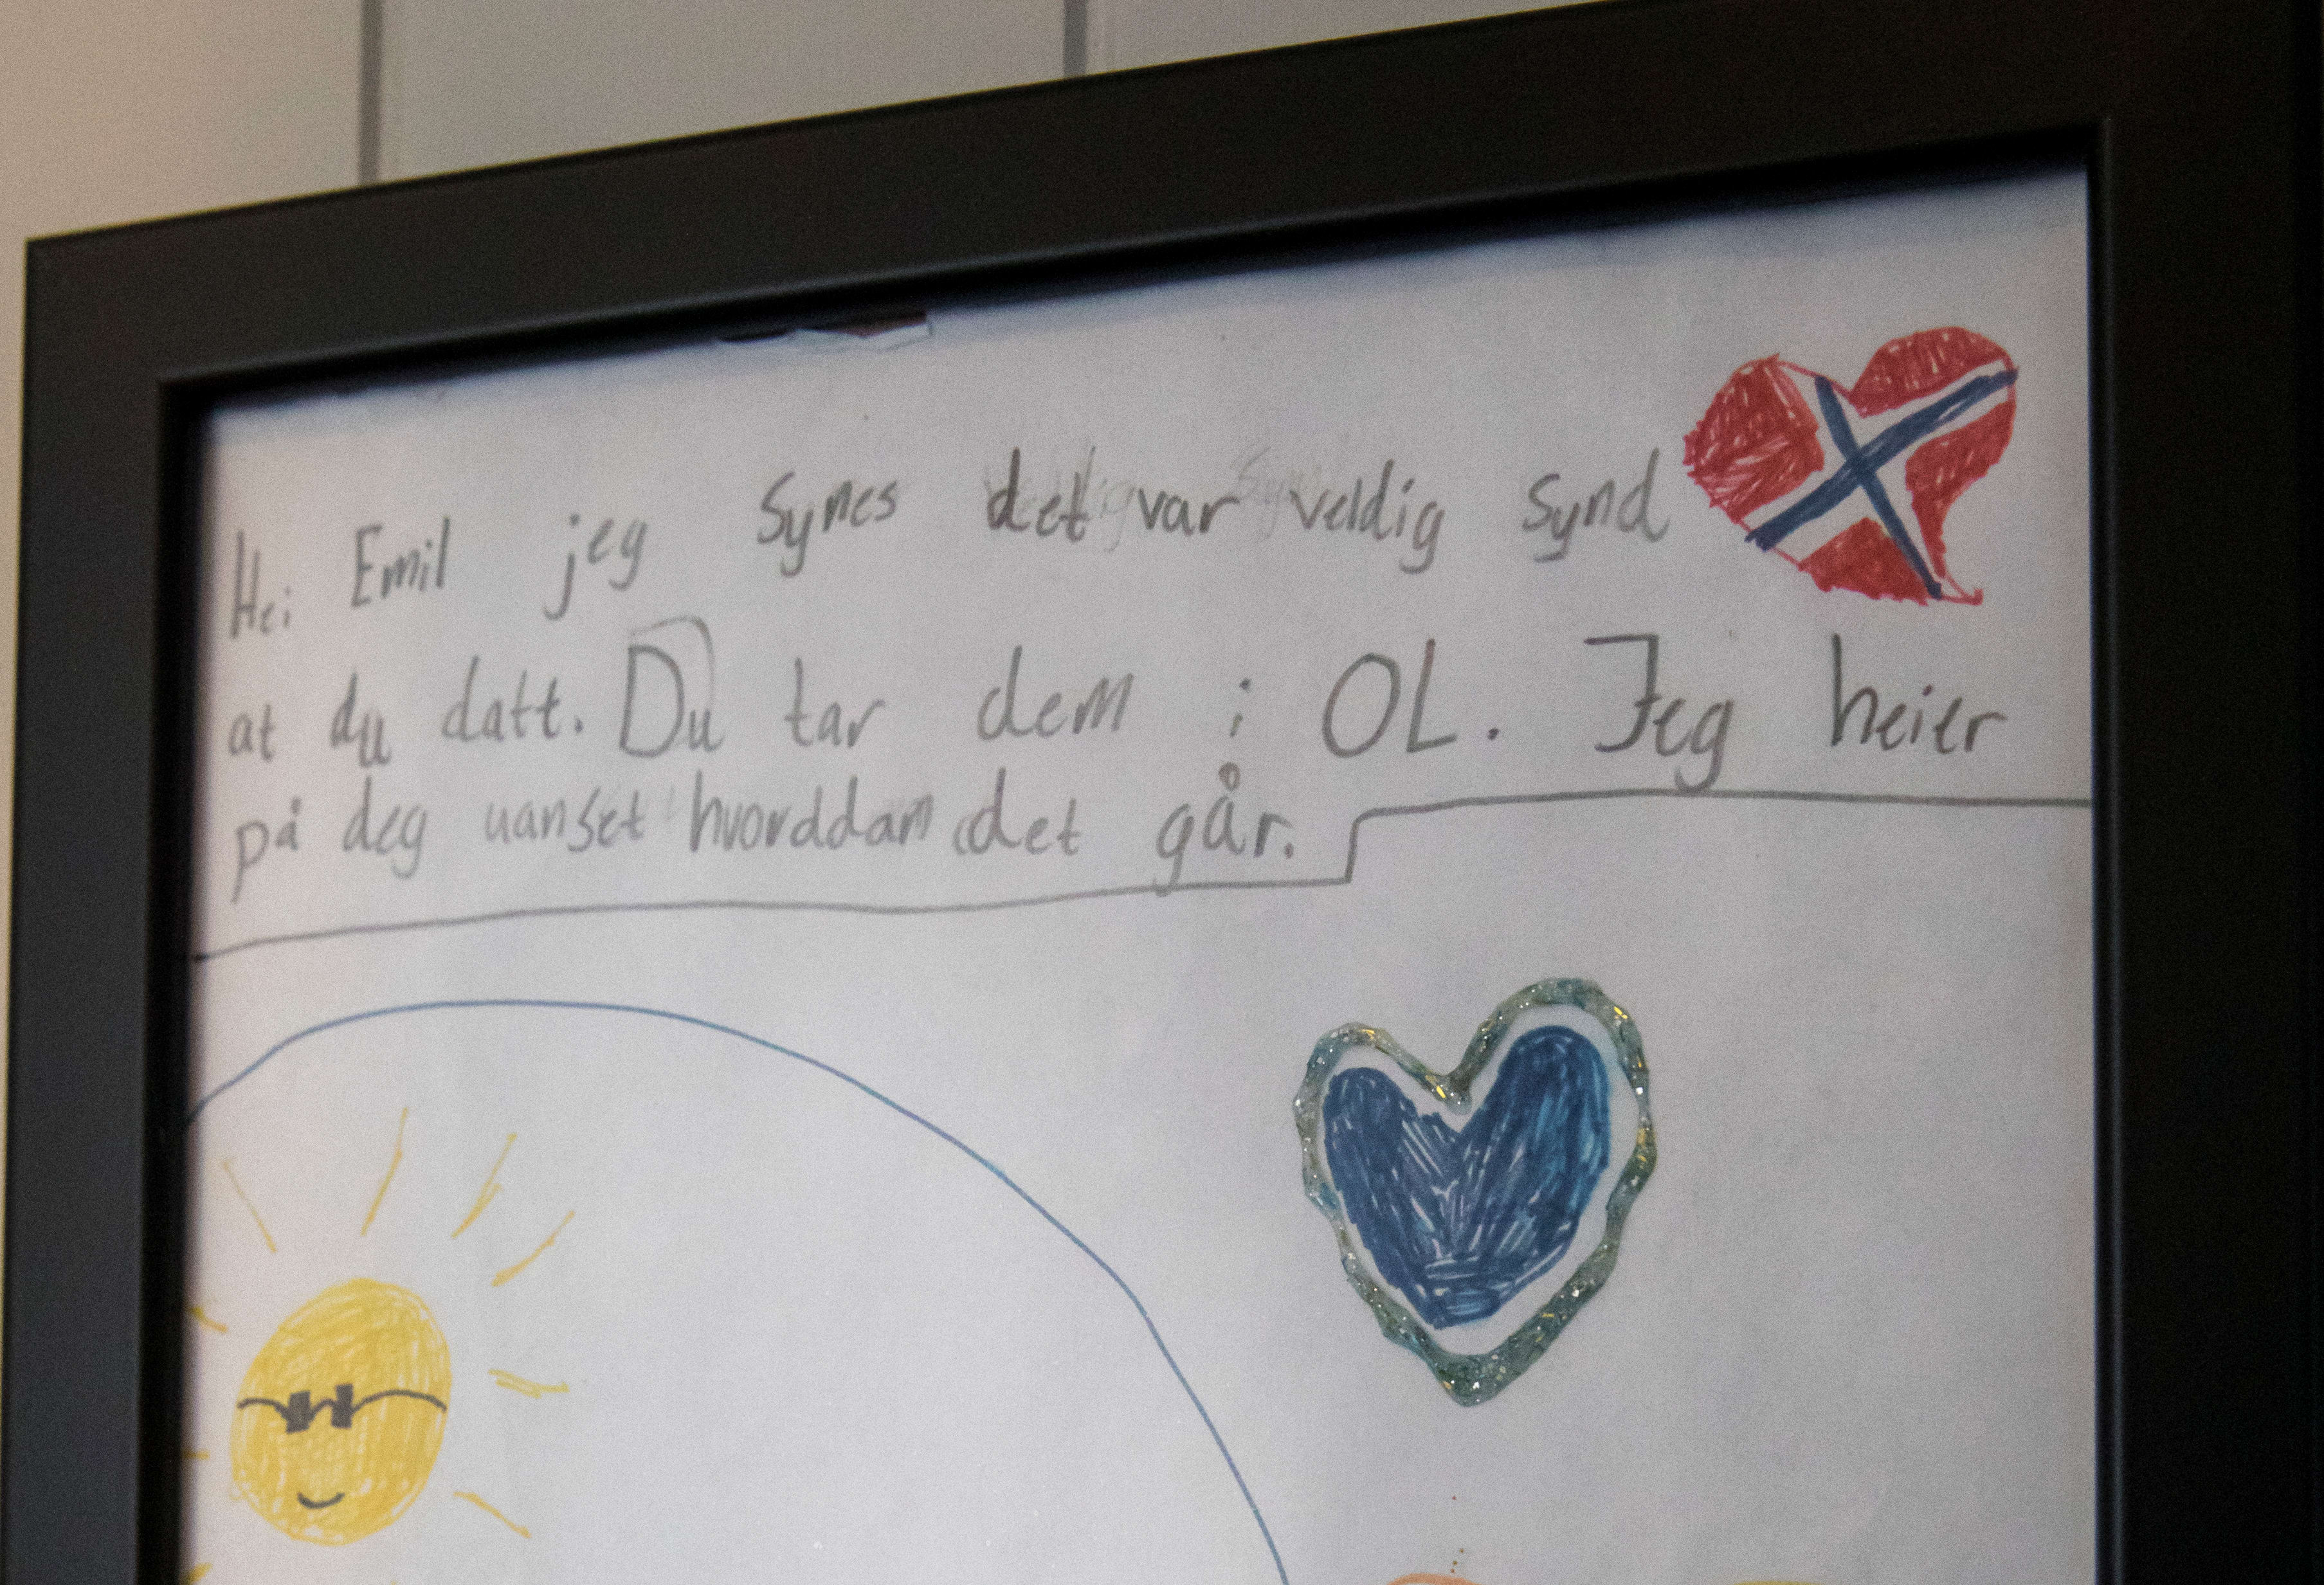 Hei Emil jeg Synes det var veldig Synd
at du datt. Du tar dem i OL. Jeg heier
på deg uanset hvorddan det går.